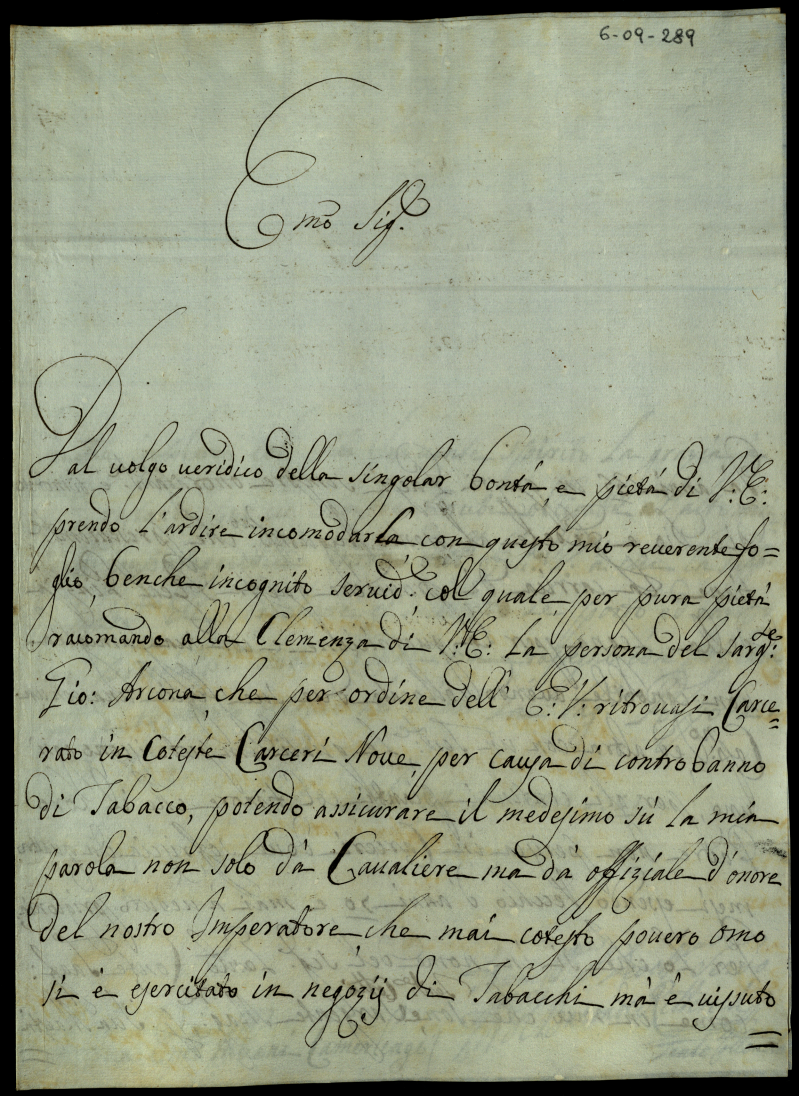 6-09-289
Emo Sig.r
Dal volgo veridico della singolar bontà, e pietà di V: E:
prendo l'ardire incomodarla con questo mio reverente fo=
glio, benche incognito servid.e col quale, per pura pietà
racomando alla Clemenza di V: E: la persona del sarg.te:
Gio: Arcona, che per ordine dell' E: V: ritrovasi Carce=
rato in Coteste Carceri Nove, per causa di controbanno
di Tabacco, potendo assicurare il medesimo sù la mia
parola non solo dà Cavaliere ma dà offiziale d'onore
del nostro Imperatore, che mai cotesto povero omo
si è esercitato in negozij di Tabacchi mà è vissuto